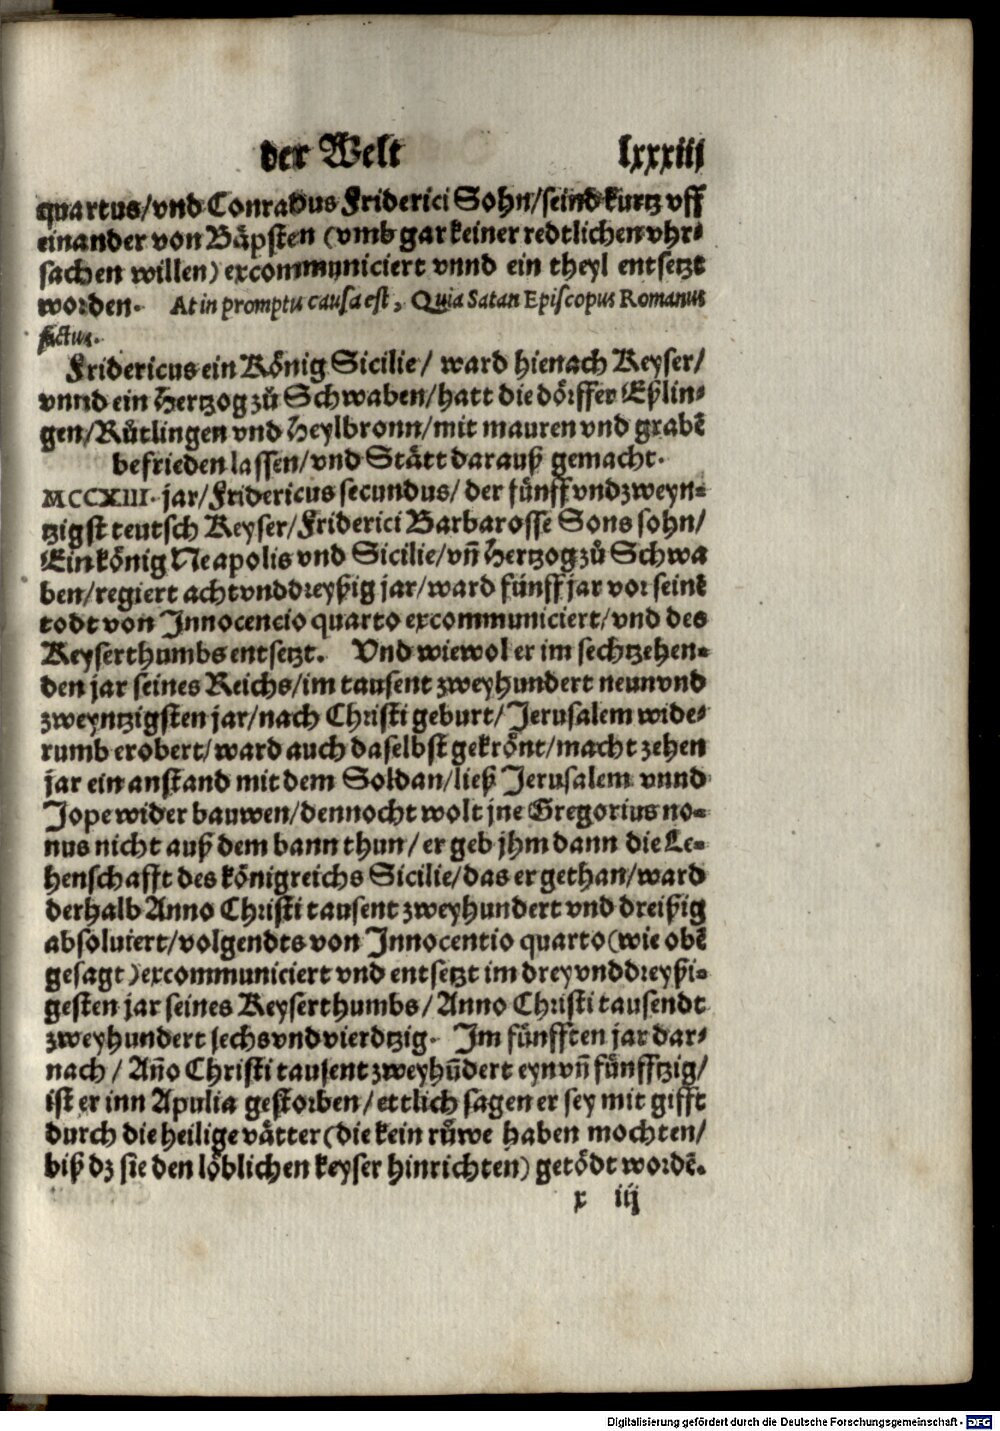 der Welt lxxxiij
quartus/vnd Conradus Friderici Sohn/seind kurtz vff
einander von Bäpsten (vmb gar keiner redtlichen vhr⸗
sachen willen) excommuniciert vnnd ein theyl entsetzt
worden. At in promptu causa est, Quia Satan Episcopus Romanus
factus.
Fridericus ein König Sicilie/ ward hienach Keyser/
vnnd ein Hertzog zů Schwaben/hatt die dörffer Eßlin⸗
gen/Rütlingen vnd Heylbronn/mit mauren vnd grabē
befrieden lassen/vnd Stätt darauß gemacht.
MCCXIII. jar/Fridericus secundus/ der fünff vndzweyn⸗
tzigst teutsch Keyser/Friderici Barbarosse Sons sohn/
Ein könig Neapolis vnd Sicilie/vñ Hertzog zů Schwa
ben/regiert achtvnddreyßig jar/ward fünff jar vor seinē
todt von Innocencio quarto excommuniciert/vnd des
Keyserthumbs entsetzt. Vnd wiewol er im sechtzehen⸗
den jar seines Reichs/im tausent zweyhundert neunvnd
zweyntzigsten jar/nach Christi geburt/Jerusalem wide⸗
rumb erobert/ward auch daselbst gekrönt/macht zehen
jar ein anstand mit dem Soldan/ließ Jerusalem vnnd
Jope wider bauwen/dennocht wolt jne Gregorius no⸗
nus nicht auß dem bann thun/er geb jhm dann die Le⸗
henschafft des königreichs Sicilie/das er gethan/ward
derhalb Anno Christi tausent zweyhundert vnd dreißig
absoluiert/volgendts von Innocentio quarto (wie obē
gesagt) excommuniciert vnd entsetzt im dreyvnddreyßi⸗
gesten jar seines Keyserthumbs/Anno Christi tausendt
zweyhundert sechsvndvierdtzig. Im fünfften jar dar⸗
nach/ Año Christi tausent zweyhūdert eynvñ fünfftzig/
ist er inn Apulia gestorben/ettlich sagen er sey mit gifft
durch die heilige vätter (die kein růwe haben mochten/
biß dz sie den löblichen keyser hinrichten) getödt wordē.
x iij
Digitalisierung gefördert durch die Deutsche Forschungsgemeinschaft - DFG